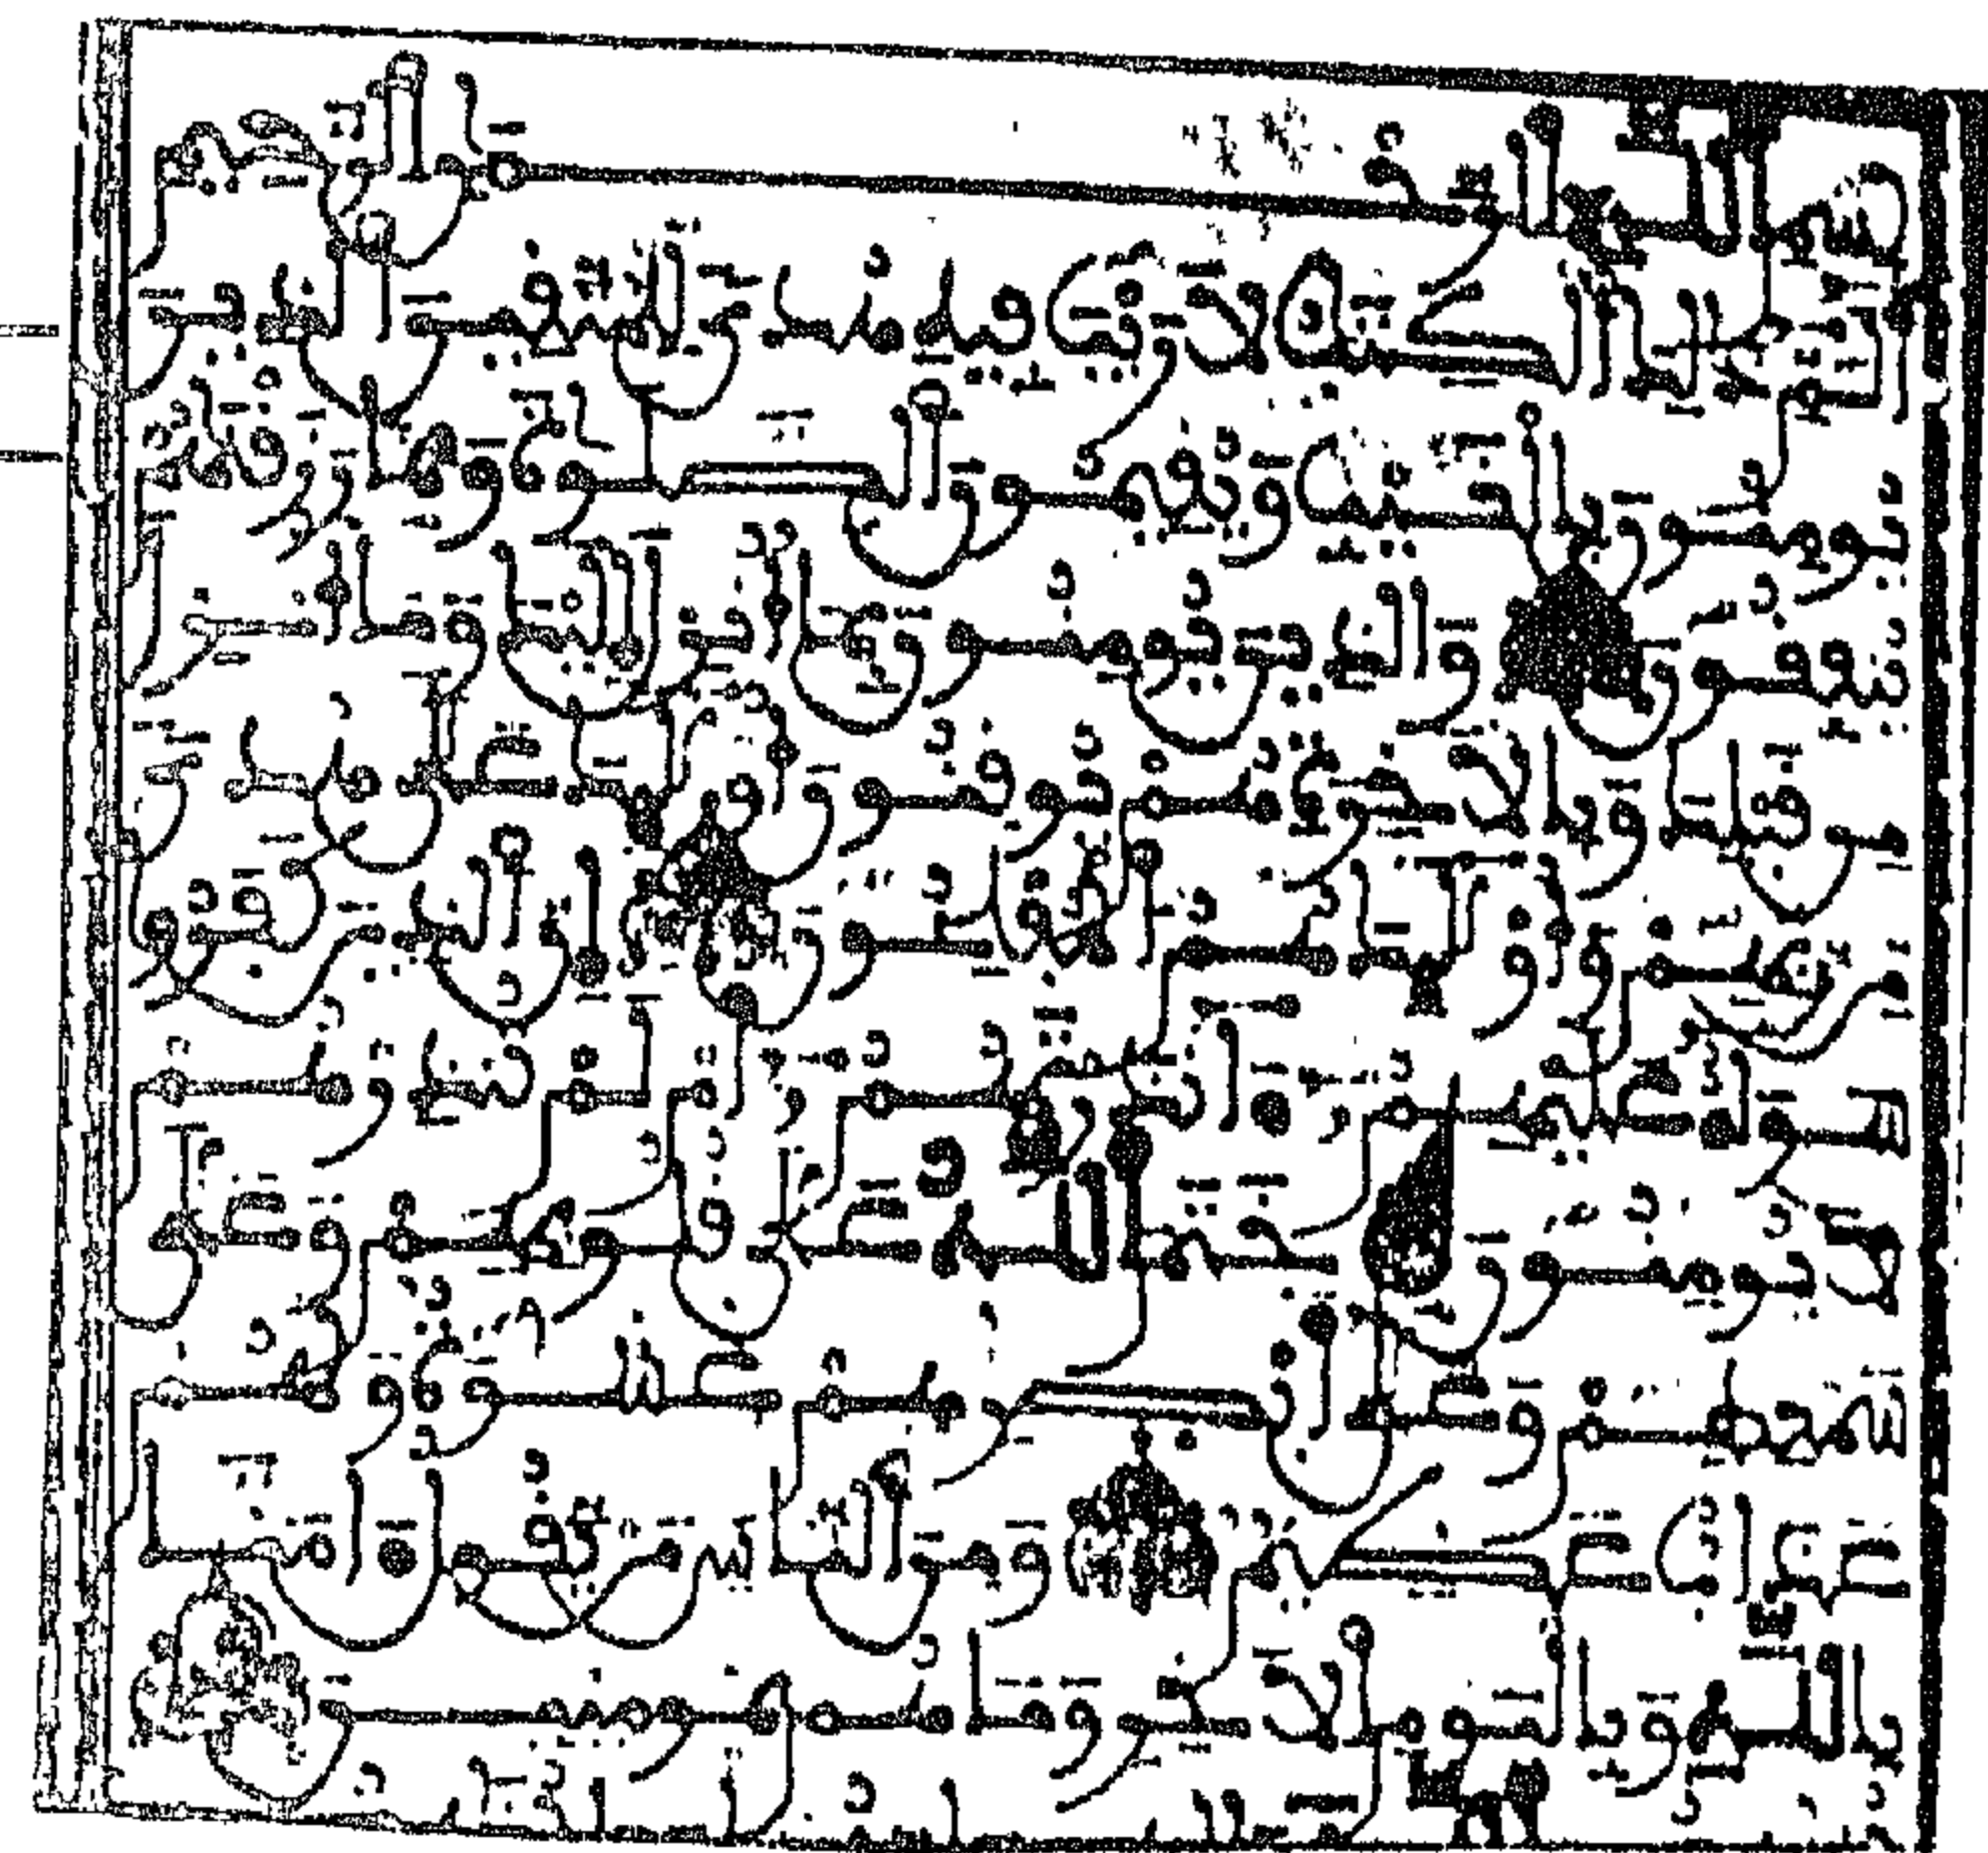 بسم الله الرحمن الرحيم
الم ذلك الكتب لا ريب فيه هدى للمتقين الذين
يومنون بالغيب ويقيمون الصلوة ومما رزقنهم
ينفقون والذين يومنون بما انزل اليك وما انزل
من قبلك وبالاخرة هم يوقنون اولئك على هدى
من ربهم واولئك هم المفلحون ان الذين
كفروا سواء عليهم ءانذرتهم ام لم تنذرهم
لا يومنون ختم الله على قلوبهم وعلى
سمعهم وعلى ابصرهم غشوة ولهم
عذاب عظيم ومن الناس من يقول ءامنا
بالله وباليوم الاخر وما هم بمومنين